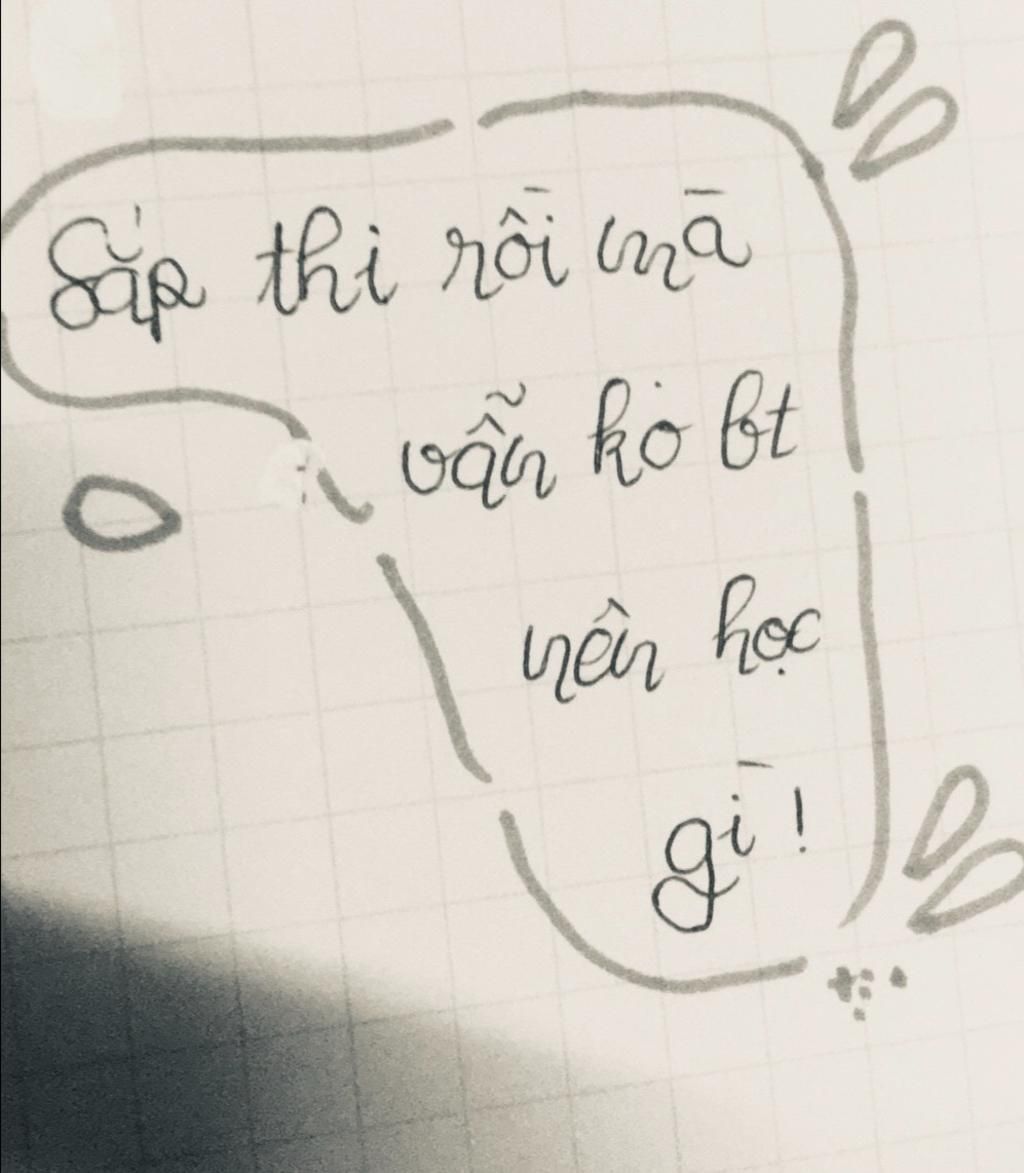 Sắp thi rồi mà
vẫn ko bt
nên học
gì !